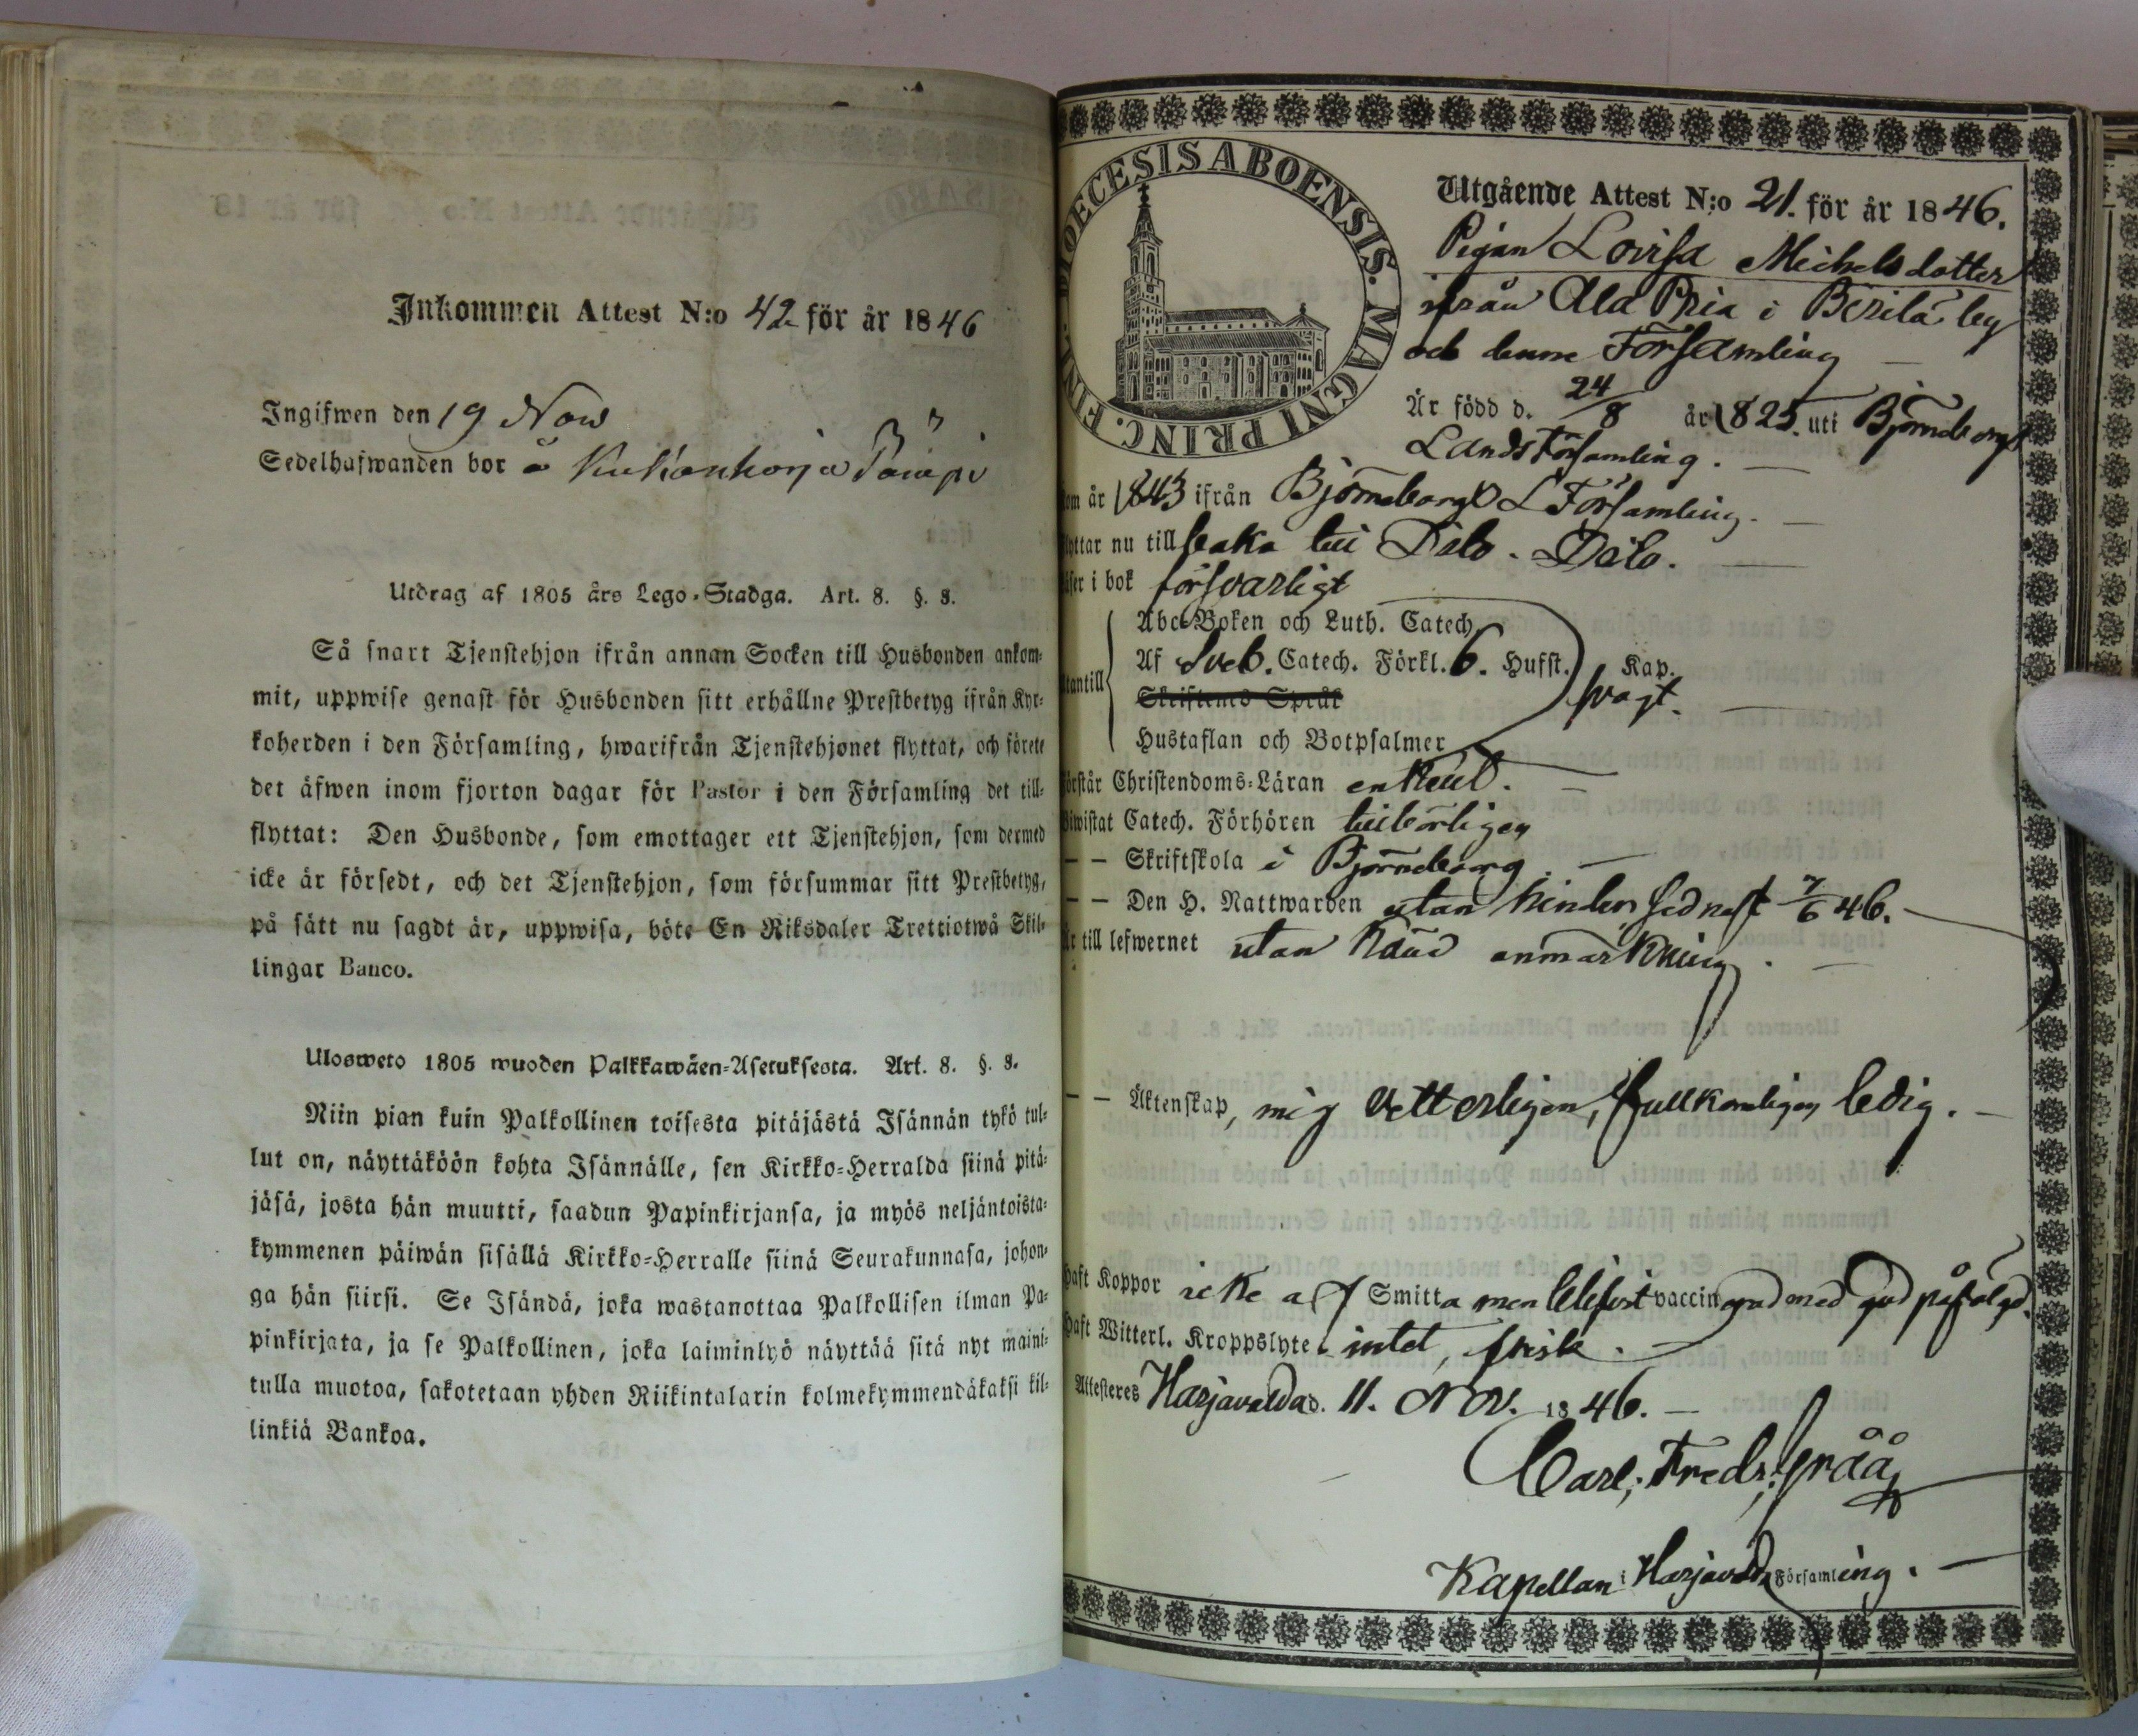 Inkommen Attest N:o 42 för år 1846
Ingifwen den 19 Nov
Sedelhafwanden bor å
Utdrag af 1805 års Lego-Stadga. Art. 8. §. 8.
Så snart Tjenstehjon ifrån annan Socken till Husbonden ankom-
mit, uppwise genast för Husbonden sitt erhållne Prestbetyg ifrån Kyr-
koherden i den Församling, hwarifrån Tjenstehjonet flyttat, och förete
det äfwen inom fjorton dagar för Pastor i den Församling det till-
flyttat: Den Husbonde, som emottager ett Tjenstehjon, som dermed
icke är försedt, och det Tjenstehjon, som försummar sitt Prestbetyg,
på sätt nu sagdt är, uppwisa, böte En Riksdaler Trettiotwå Skil-
lingar Banco.
Ulosweto 1805 wuoden Palkkawäen-Asetuksesta. Art. 8. §. 8.
Niin pian kuin Palkollinen toisesta pitäjästä Isännän tykö tul-
lut on, näyttäköön kohta Isännälle, sen Kirkko-Herralda siinä pitä-
jäsä, josta hän muutti, saadun Papinkirjansa, ja myös neljäntoista-
kymmenen päiwän sisällä Kirkko-Herralle siinä Seurakunnasa, johon-
ga hän siirsi. Se Isändä, joka wastanottaa Palkollisen ilman Pa-
pinkirjata, ja se Palkollinen, joka laiminlyö näyttää sitä nyt maini-
tulla muotoa, sakotetaan yhden Riikintalarin kolmekymmendäkaksi kil-
linkiä Bankoa.
DIOECESIS ABOENSIS. MAGNI PRINC. FINL.
Utgående Attest N:o 21. för år 1846.
Pigan Lovisa Michelsdotter
ifrån Ala Pria i by
och denne Församling
Är född d. 24/8 år 1825. uti Björneborgs
Lands Församling.
om år 1843 ifrån Björneborgs L Församling.
lyttar nu tillbaka till Dito. Dito.
äser i bok försvarligt
Abc-Boken och Luth. Catech.
Af Sveb. Catech. Förkl. 6. Husst. Kap.
tantill svagt.
Skriftenes Språk
Hustaflan och Botpsalmer
örstår Christendoms-Läran enkelt.
iwistat Catech. Förhören tillbörligen
— — Skriftskola i Björneborg.
— — Den H. Nattwarden utan hinder, sednast 7/6 46.
Är till lefwernet utan känd anmärkning.
— — Äktenskap, mig vetterligen, fullkomligen ledig.
Haft Koppor icke af Smitta men blifvit vaccinerad med god påföljd.
Haft Witterl. Kroppslyte intet, frisk.
Attesteras Harjavalda d. 11. Nov. 1846.
Carl. Fredr. Gråå
Kapellan i Harjavalda Församling.